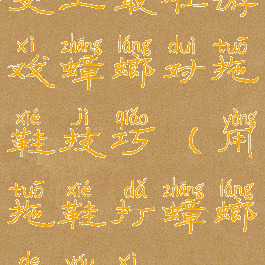 xì zhāng láng duì tuō
戏蟑螂对拖
xié jì qiǎo yòng
鞋技巧(用
tuō xié dǎ zhāng láng
拖鞋打蟑螂
de yóu xì